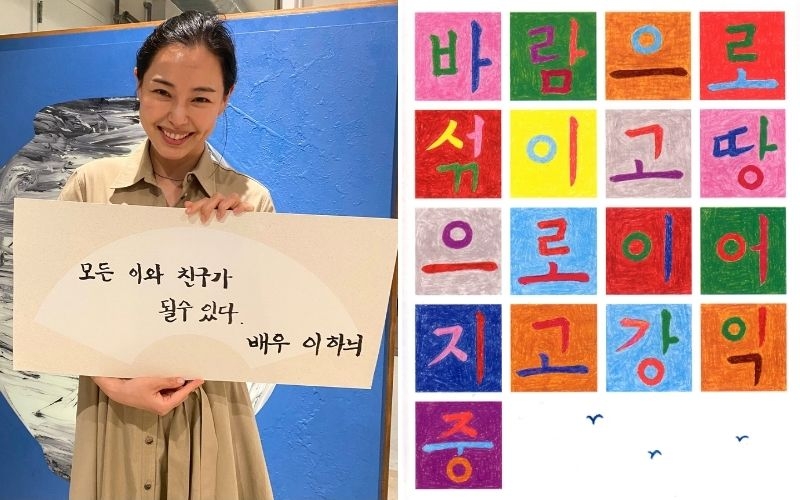 모든 이와 친구가
될수 있다.
배우 이하늬
바람으로
섞이고땅
으로이어
지고강익
중